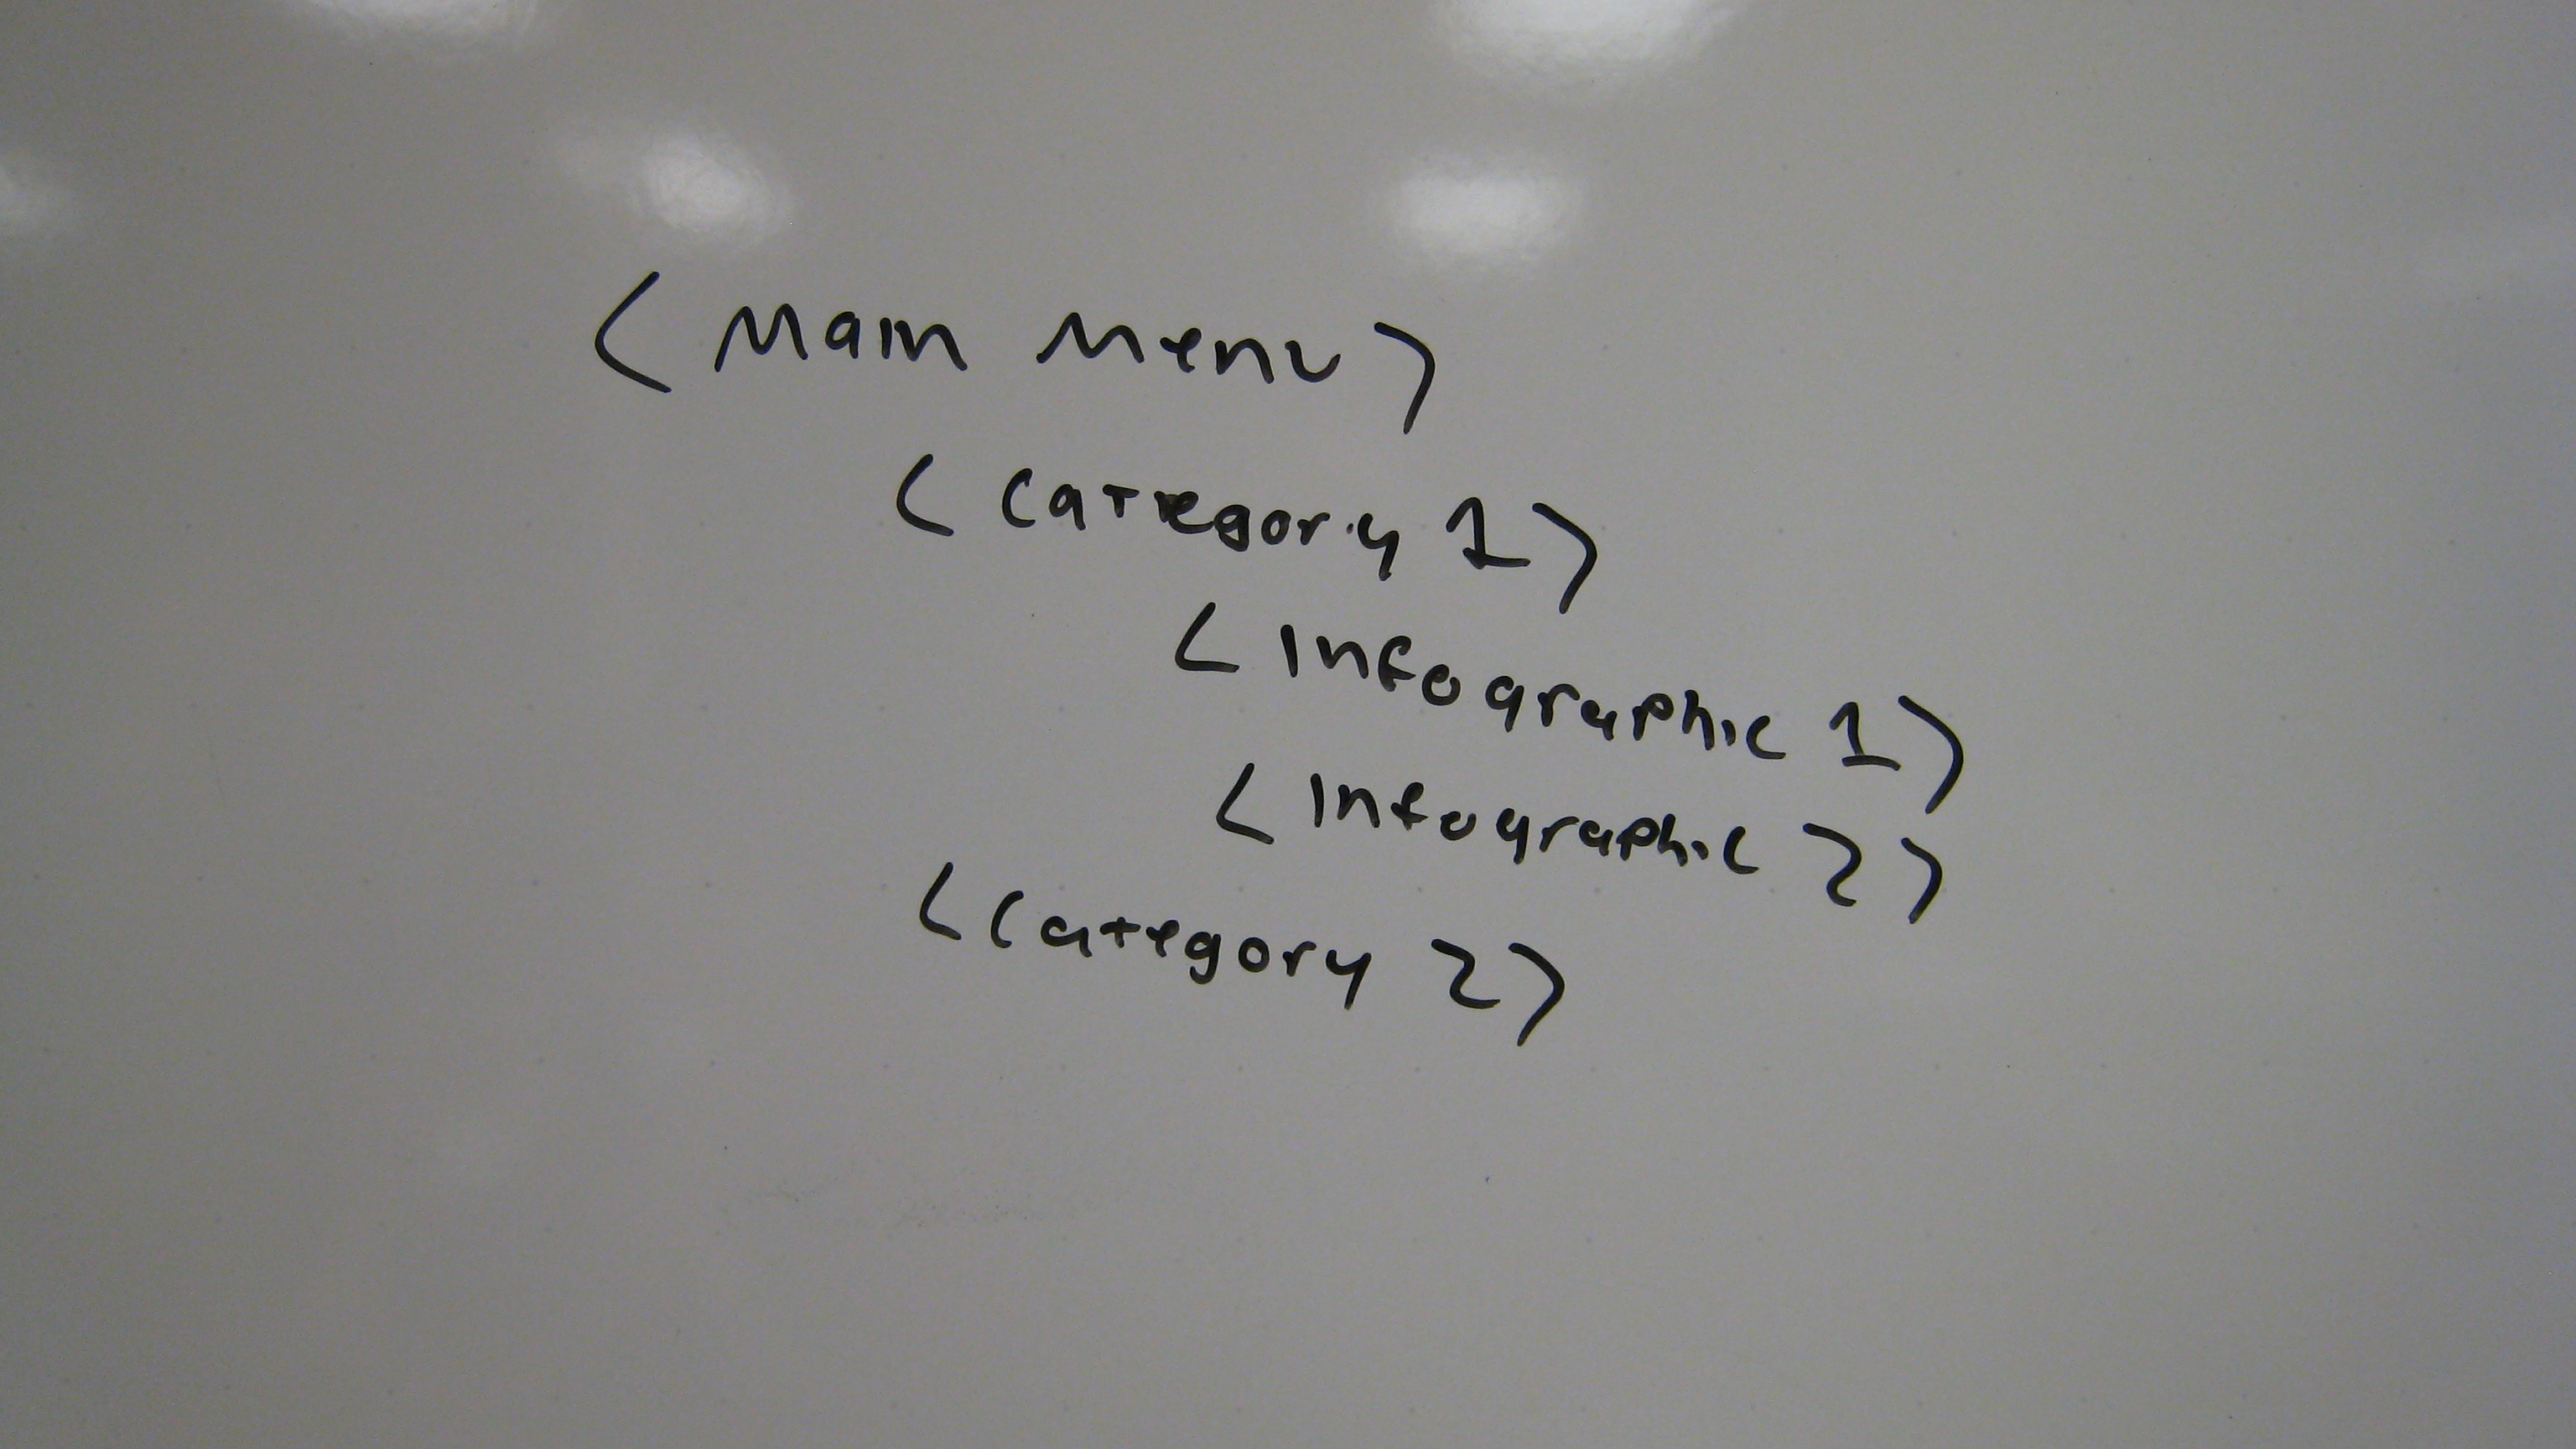 <Main Menu>
<Category 1>
<Infographic 1>
<Infographic 2>
<Category 2>